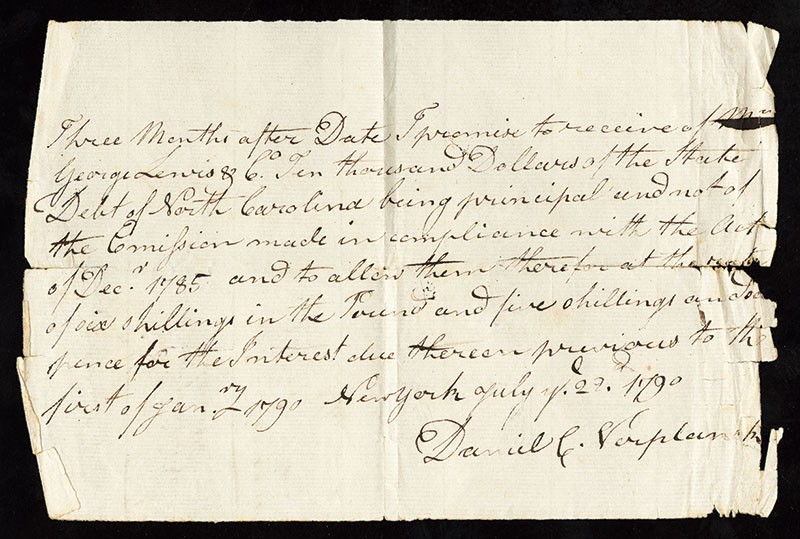 Three Months after Date I promise to receive of
George Lewis & Co. Ten thousand Dollars of the State
Debt of North Carolina being principal and not of
the Emission made in compliance with the Act
of Decr. 1785 and to allow them therefor at the rate
of six shillings in the Pound and five shillings and
pence for the Interest due thereon previous to the
first of Janry 1790 New York July ye. 22d. 1790
Daniel C. Verplanck